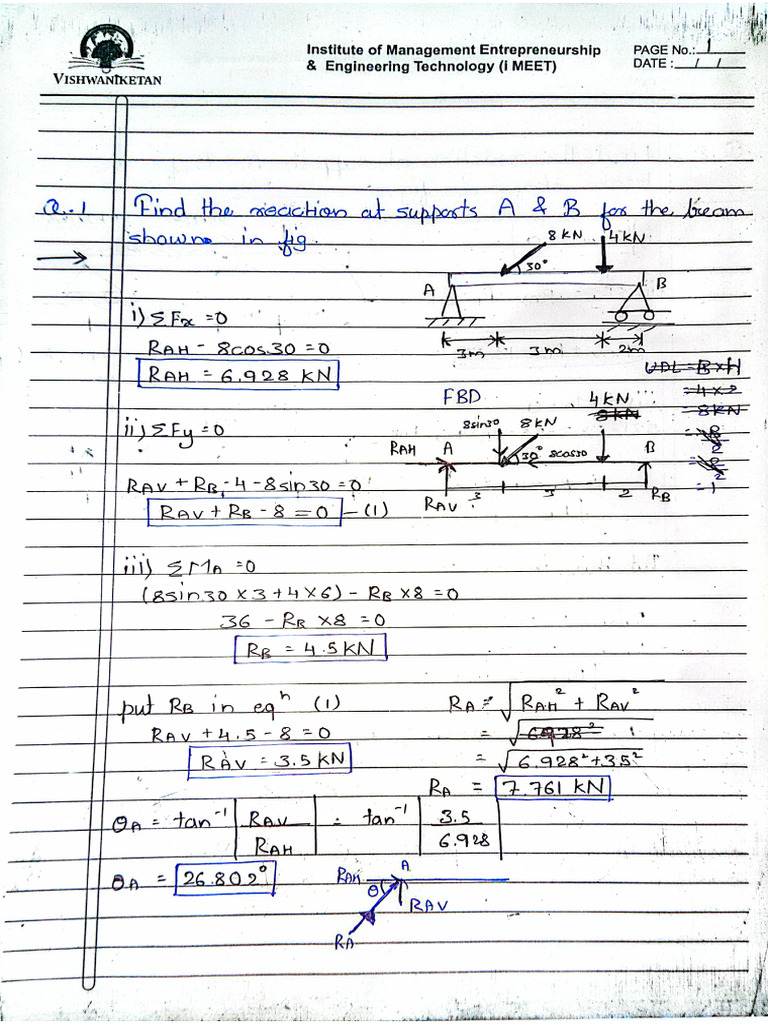 VISHWANIKETAN
Institute of Management Entrepreneurship
& Engineering Technology (i MEET)
PAGE No.: 1
DATE : / /
Q.1 Find the reaction at supports A & B for the beam
shown in fig.
8 KN 4 KN
30°
A B
3m 3m 2m
i) ΣFx = 0
RAH - 8cos30 = 0
RAH = 6.928 KN
UDL = B x H
= 4 x 2
= 8 KN
FBD
4 KN
8 KN
8sin30 8 KN
RAH A 30° 8cos30 B
RAV 3 3 2 RB
= 1
ii) ΣFy = 0
RAV + RB - 4 - 8sin30 = 0
RAV + RB - 8 = 0 - (1)
iii) ΣMA = 0
(8sin30 x 3 + 4 x 6) - RB x 8 = 0
36 - RB x 8 = 0
RB = 4.5 KN
put RB in eqn (1)
RAV + 4.5 - 8 = 0
RAV = 3.5 KN
RA = √RAH² + RAV²
= √6.928²
= √6.928² + 3.5²
RA = 7.761 KN
θA = tan⁻¹ | RAV / RAH | = tan⁻¹ | 3.5 / 6.928 |
θA = 26.802°
RAH A
θ
RAV
RA